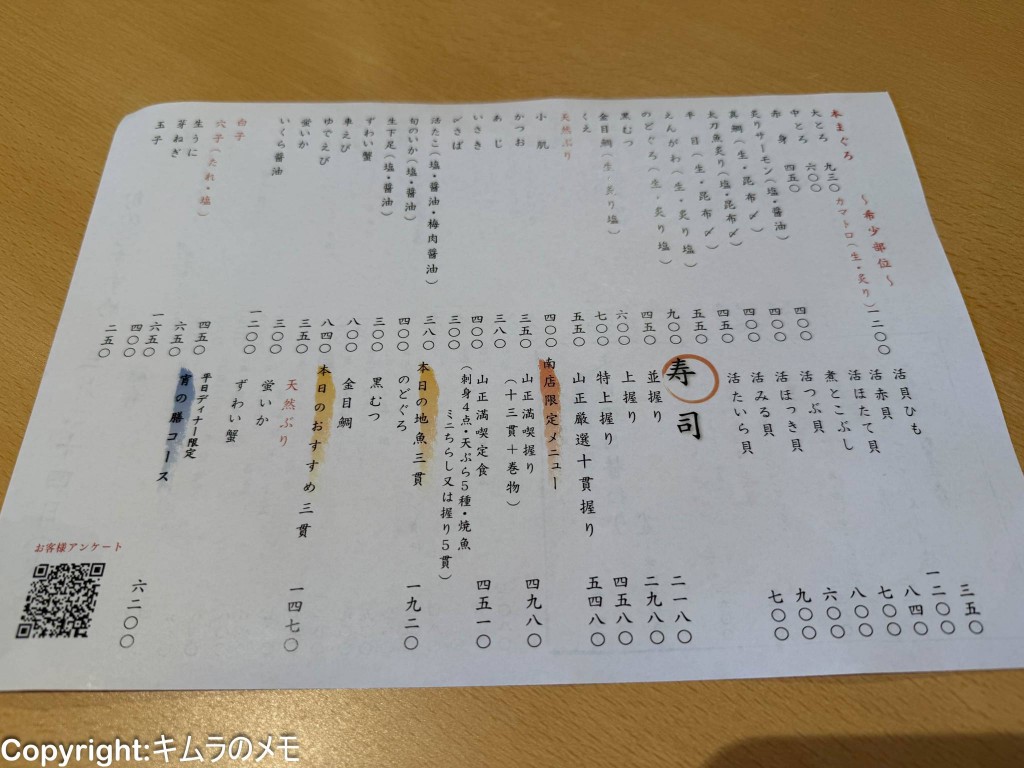 〜希少部位〜
本まぐろ
大とろ 九三〇 カマトロ(生・炙り) 一二〇〇
中とろ 六〇〇
赤身 四五〇
炙りサーモン(塩・醤油) 四〇〇
真鯛(生・昆布〆) 四〇〇
太刀魚炙り(塩・昆布〆) 四〇〇
平目(生・昆布〆) 四五〇
えんがわ(生・炙り塩) 五五〇
のどぐろ(生・炙り塩) 九〇〇
黒むつ 四五〇
金目鯛(生・炙り塩) 六〇〇
くえ 七〇〇
天然ぶり 五五〇
小肌 四〇〇
かつお 三五〇
あじ 三八〇
いさき 四〇〇
〆さば 三〇〇
活たこ(塩・醤油・梅肉醤油) 三八〇
旬のいか(塩・醤油) 四〇〇
生下足(塩・醤油) 三〇〇
ずわい蟹 八〇〇
車えび 八四〇
ゆでえび 三五〇
蛍いか 三〇〇
いくら醤油 一二〇〇
白子 四五〇
穴子(たれ・塩) 六五〇
生うに 一六五〇
芽ねぎ 四〇〇
玉子 二五〇
活貝ひも 三五〇
活赤貝 一二〇〇
活ほたて貝 八四〇
煮とこぶし 七〇〇
活つぶ貝 八〇〇
活ほっき貝 六〇〇
活みる貝 九〇〇
活たいら貝 七〇〇
寿司
並握り 二一八〇
上握り 二九八〇
特上握り 四五八〇
山正厳選十貫握り 五四八〇
南店限定メニュー
山正満喫握り 四九八〇
(十三貫+巻物)
山正満喫定食 四五一〇
(刺身4点・天ぷら5種・焼魚
ミニちらし又は握り5貫)
本日の地魚三貫 一九二〇
のどぐろ
黒むつ
金目鯛
本日のおすすめ三貫 一四七〇
天然ぶり
蛍いか
ずわい蟹
平日ディナー限定
宵の膳コース 六二〇〇
お客様アンケート
Copyright:キムラのメモ